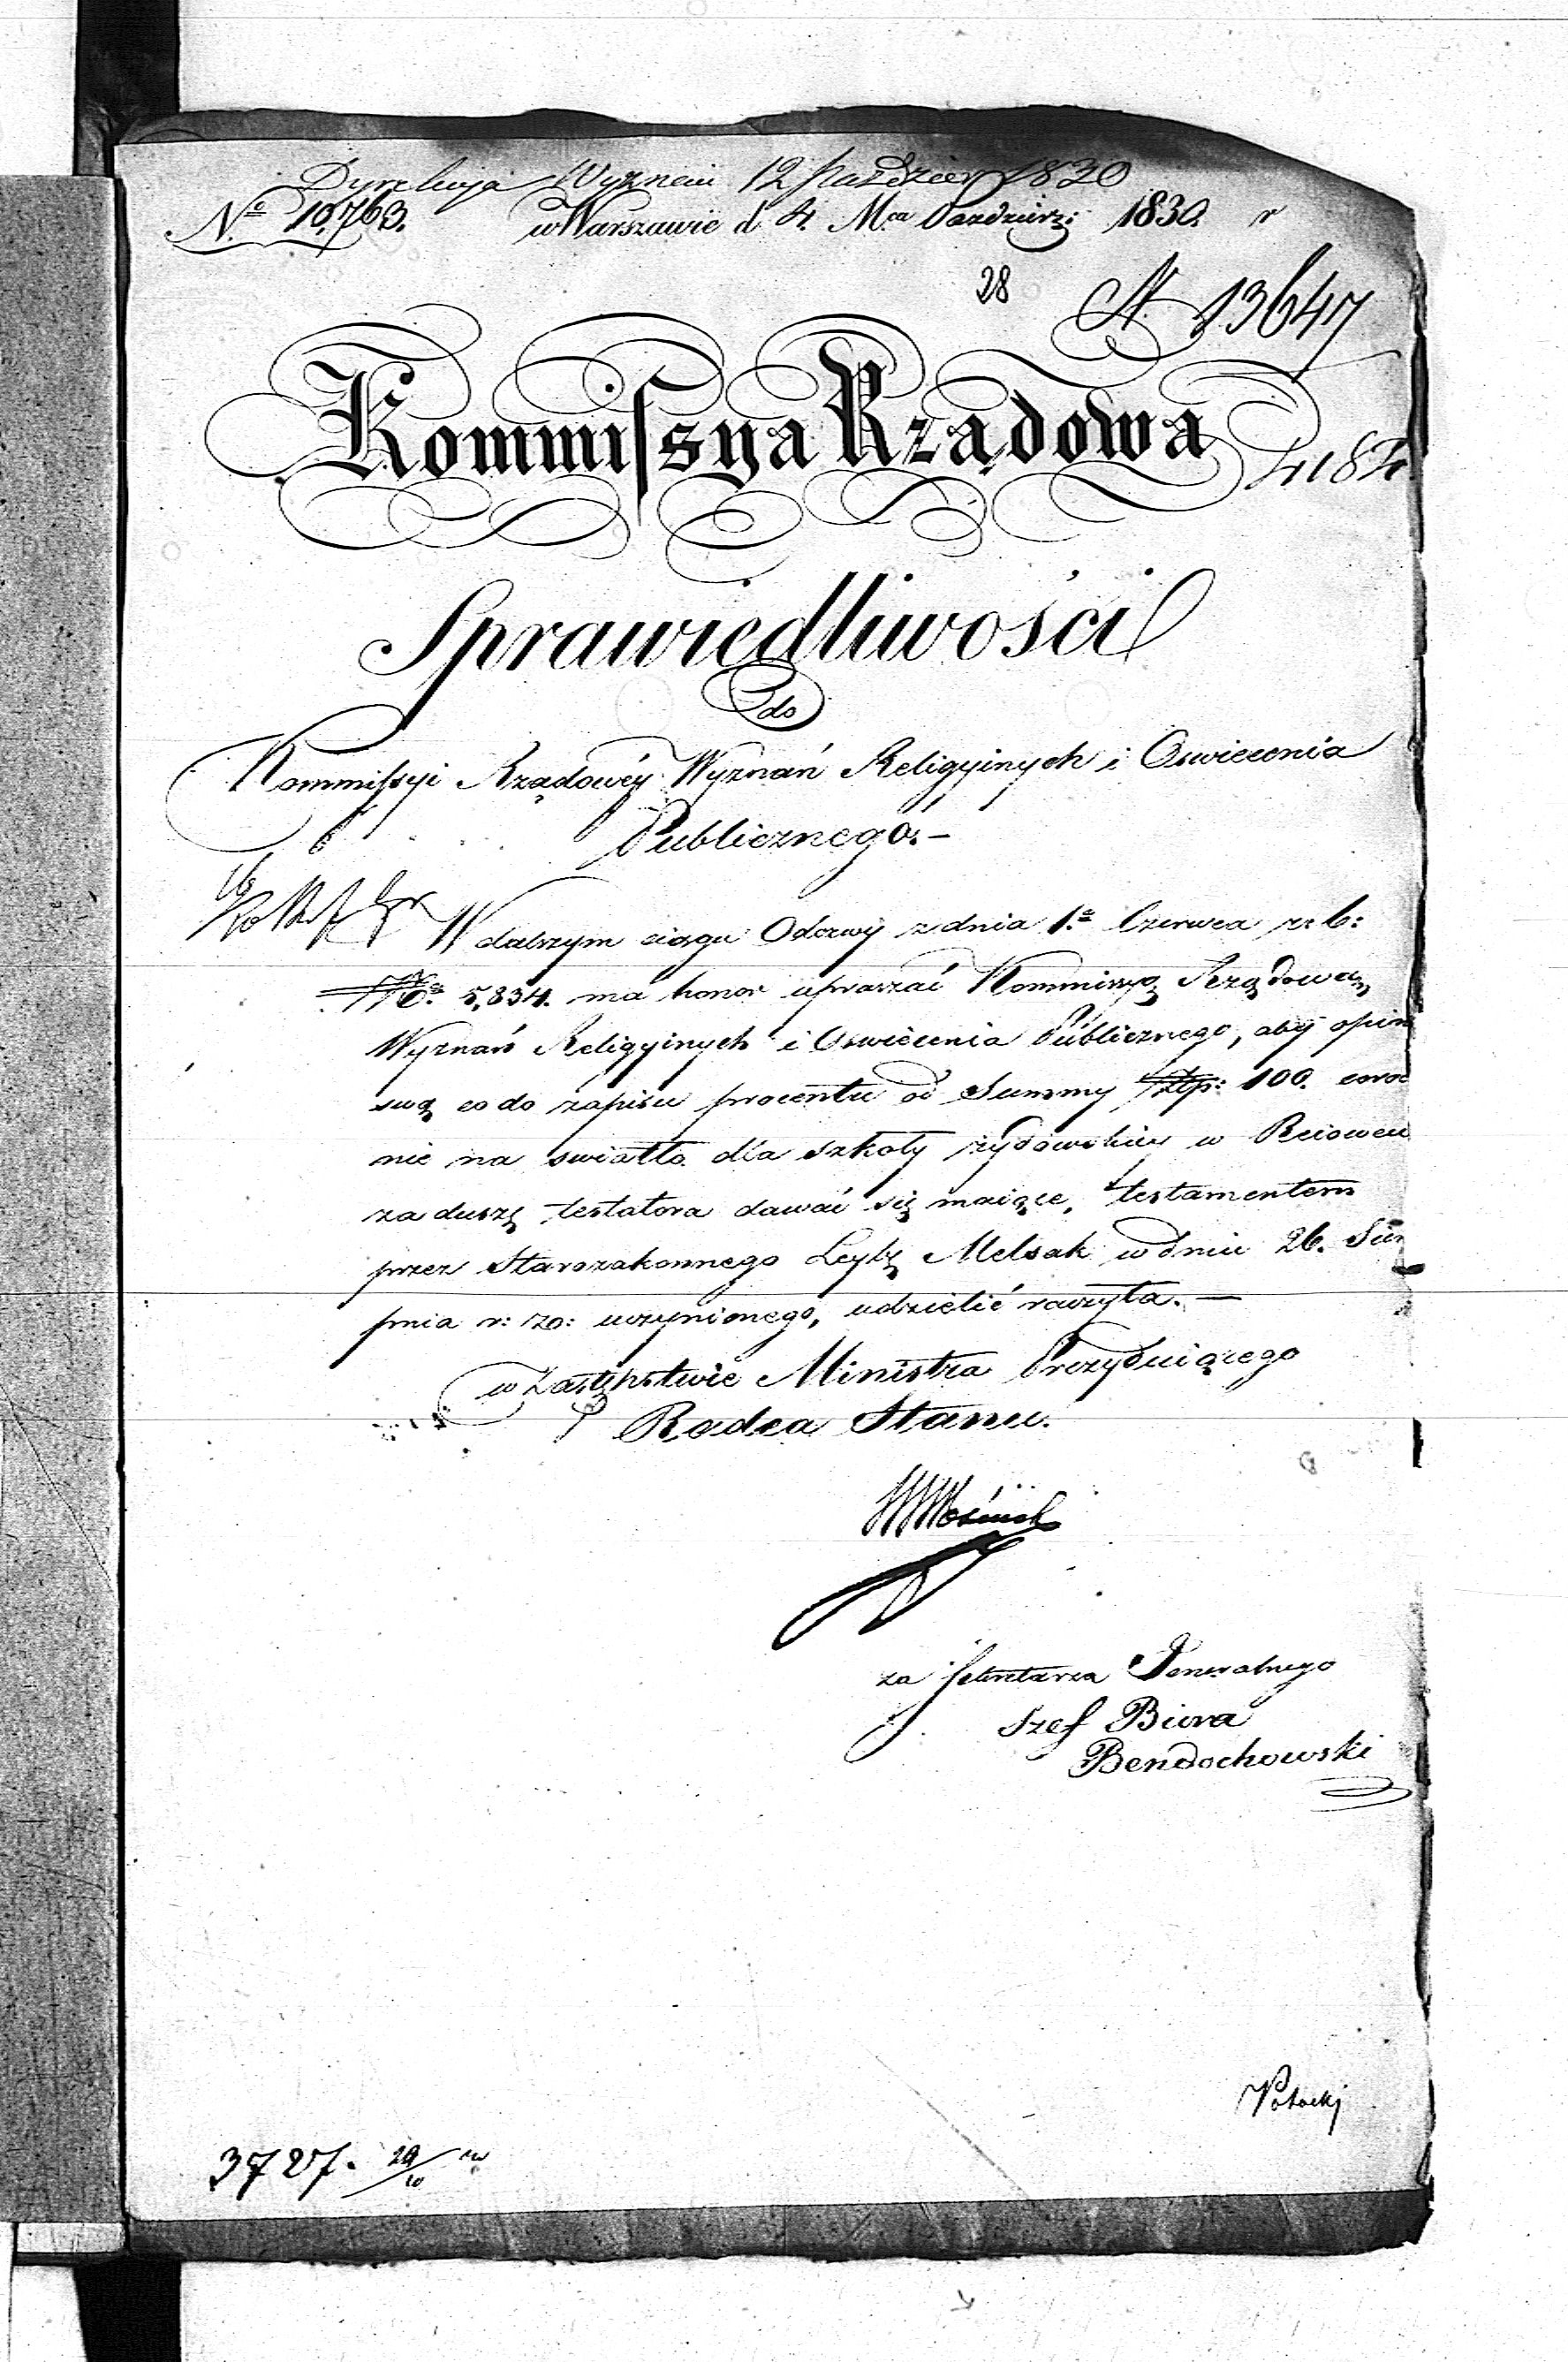 Dyrekcyja Wyznań 12 Paździer 1830
No 10,763. w Warszawie d 4. Mca Październ: 1830. r
28 N 13647
Kommissya Rządowa
4184
Sprawiedliwości
do
Kommissyi Rządowéy Wyznań Religyinych i Oswiecenia
Publicznego.—
W dalszym ciągu Odezwy z dnia 1.o Czerwca r. b:
No. 5,834. ma honor upraszać Kommissyą Rządową
Wyznań Religyinych i Oswiecenia Publicznego, aby opin
swą co do zapisu procentu od Summy Złp: 100. coro
nie na swiatło dla szkoły żydowskiey w Reiowcu
za duszę testatora dawać się maiące, testamentem
przez Starozakonnego Leybę Melsak w dniu 26. Sier
pnia r: zo: uczynionego, udzielić raczyła.—
w Zastępstwie Ministra Prezyduiącego
Radca Stanu.
Woźnicki
za Sekretarza Generalnego
Szef Biora
Bendochowski
Potocki
3727. 29/10